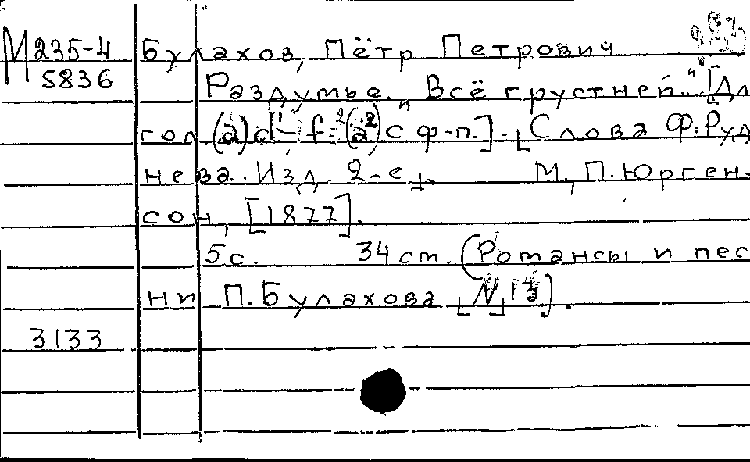 М 235-4 Булахов, Пётр Петрович
5836 Раздумье. "Всё грустней..." [Дл
гол. (a) d¹-f² (a²) с ф-п.]. Слова Ф. Руд
нева. Изд. 2-е. М., П. Юрген-
сон, [1877].
5 с. 34 cm. (Романсы и пес
ни П. Булахова [N]
3133